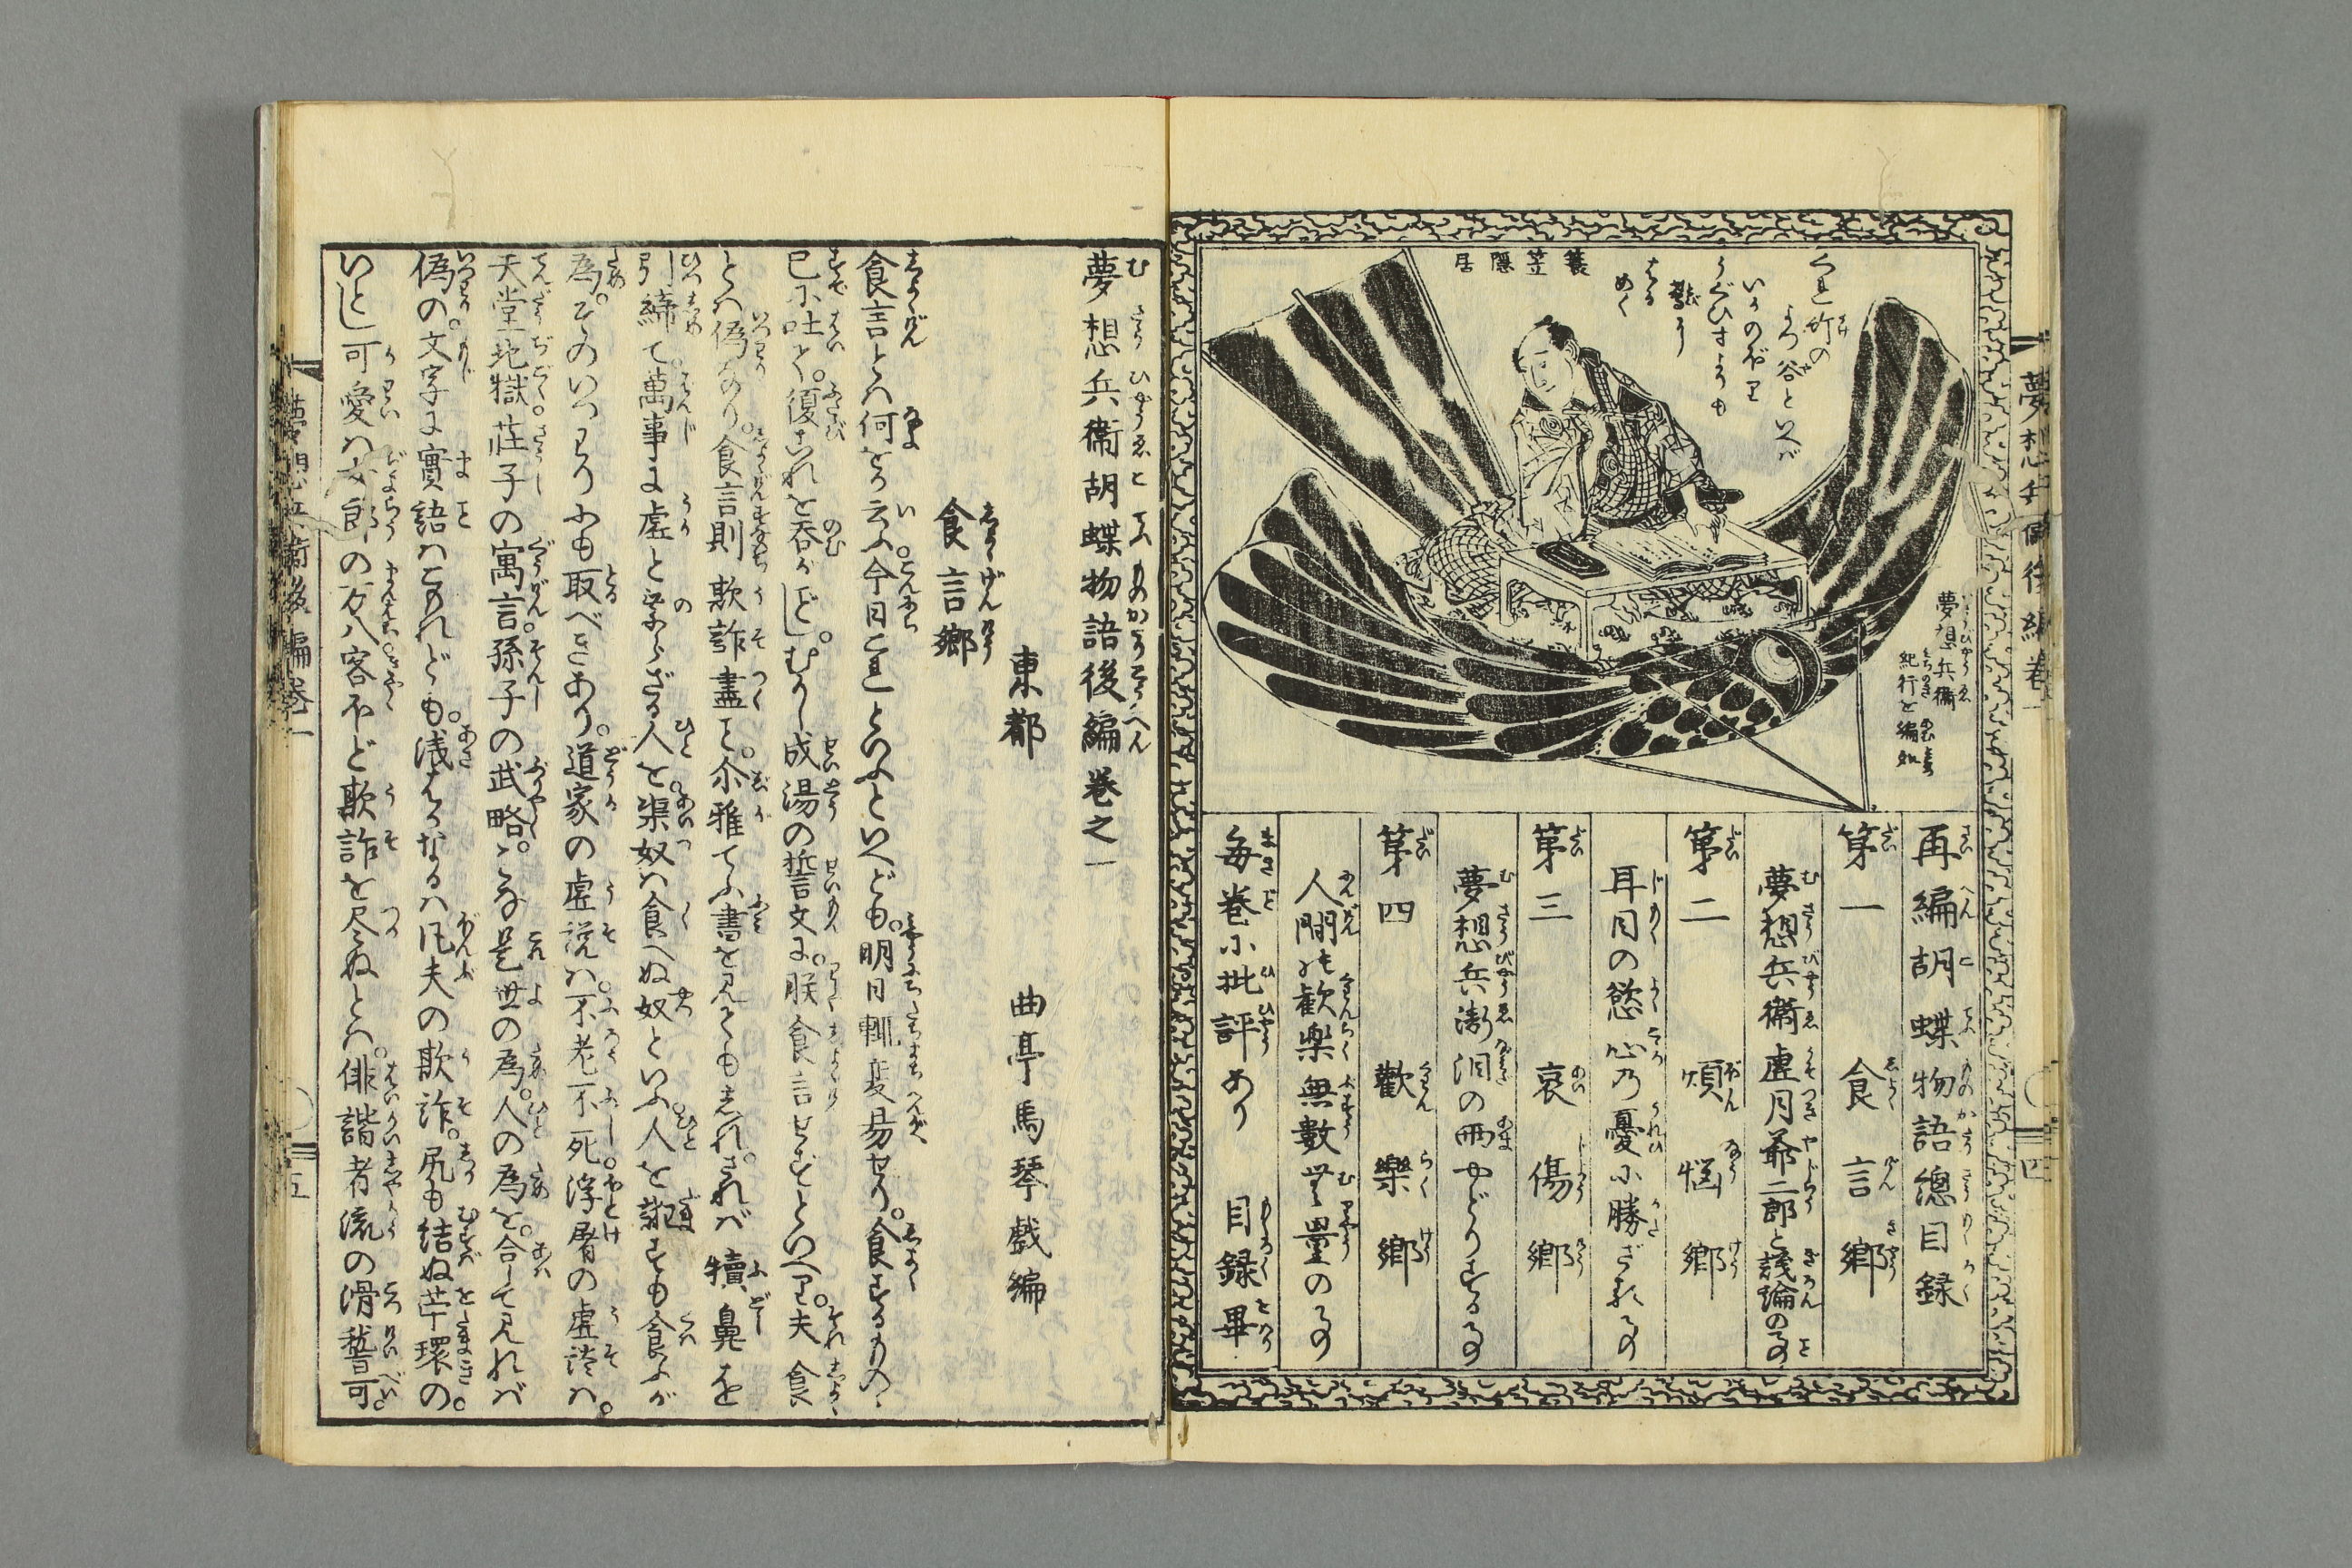 夢想兵衛後編巻一
四
くれ竹の
よつ谷といへば
いかのぼり
うぐひすよりも
はる
めく
蓑笠隠居
夢想兵衛
紀行を編如
再編胡蝶物語總目録
第一 食言郷
夢想兵衛虚月爺二郎と議論の事
第二 煩悩郷
耳目の慾心乃憂に勝ざる事
第三 哀傷郷
夢想兵衛泪の雨やどりする事
第四 歡樂郷
人間も歡樂無數無量の事
毎巻に批評あり 目録畢
夢想兵衞胡蝶物語後編巻之一
東都 曲亭馬琴戲編
食言郷
食言とは何をか云ふ。今日これといふといへども。明日輙變易せり。食するものゝ
已に吐て。復これを呑がごとし。むかし成湯の誓文に。朕食言せずといへり。夫食言
とは偽なり。食言則欺詐盡と。尒雅てふ書を見ても志れ。されば犢鼻を
引締て。萬事に虚と乗らざる人を。渠奴は食へぬ奴といふ。人を譀ずも食ふが
為。そのいつはりにも取べきあり。道家の虚説は。不老不死浮屠の虚誕は。
天堂地獄。荘子の寓言。孫子の武略。こは是世の為。人の為を。合して見れば
偽の。文字に實語はこもれども。浅はかなるは凡夫の欺詐。尻も結ぬ苧環の。
いとし可愛は女郎の万八。客ほど欺詐を尽ぬとは。俳諧者流の滑稽可。
夢想兵衛後編巻一
五